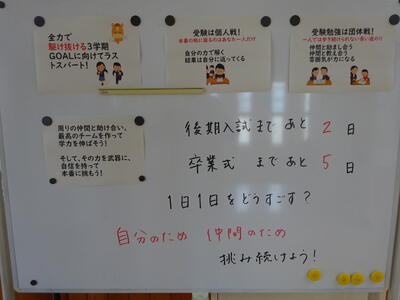 全力で
駆け抜ける3学期
GOALに向けてラス
トスパート!
受験は個人戦!
本番の机に座るのはあなた一人だけ
自分の力で解く
結果は自分に返ってくる
受験勉強は団体戦!
一人では歩き続けられない長い道のり
仲間と励まし合う
仲間と教え合う
雰囲気が力になる
周りの仲間と助け合い、
最高のチームを作って
学力を伸ばそう!
そして、その力を武器に、
自信を持って
本番に挑もう!
後期入試まであと 2 日
卒業式 まであと 5 日
1日1日をどうすごす?
自分のため 仲間のため
挑み続けよう!